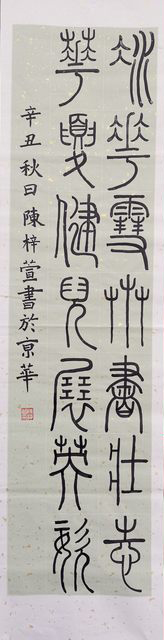 冰花雪卉書壯志
華夏健兒展英姿
辛丑秋日陳梓萱書於京華